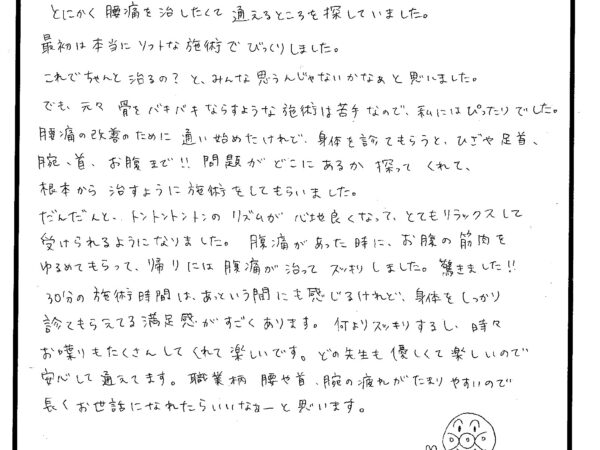 とにかく腰痛を治したくて通えるところを探していました。
最初は本当にソフトな施術でびっくりしました。
これでちゃんと治るの？と、みんな思うんじゃないかなぁと思いました。
でも、元々骨をバキバキならすような施術は苦手なので、私にはぴったりでした。
腰痛の改善のために通い始めたけれど、身体を診てもらうと、ひざや足首、
腕、首、お腹まで!! 問題がどこにあるか探ってくれて、
根本から治すように施術をしてもらいました。
だんだんと、トントントントンのリズムが心地良くなって、とてもリラックスして
受けられるようになりました。腹痛があった時に、お腹の筋肉を
ゆるめてもらって、帰りには腹痛が治ってスッキリしました。驚きました!!
30分の施術時間は、あっという間にも感じるけれど、身体をしっかり
診てもらえてる満足感がすごくあります。何よりスッキリするし、時々
お喋りもたくさんしてくれて楽しいです。どの先生も優しくて楽しいので
安心して通えてます。職業柄腰や首、腕の疲れがたまりやすいので
長くお世話になれたらいいなぁーと思います。